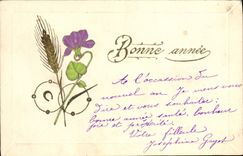 Bonne année
A l'occasion du
nouvel an Je viens vous
Dire et vous souhaiter :
bonne année santé, bonheur
joie et prospérité.
Votre filleule
Joséphine Guyot